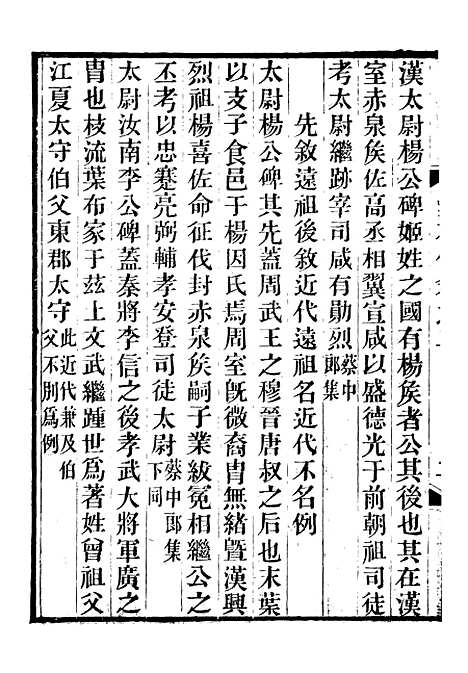 漢太尉楊公碑姬姓之國有楊矦者公其後也其在漢
室赤泉矦佐高丞相翼宣咸以盛德光于前朝祖司徒
考太尉繼跡宰司咸有勛烈蔡中郎集
先敘遠祖後敘近代遠祖名近代不名例
太尉楊公碑其先蓋周武王之穆晉唐叔之后也末葉
以支子食邑于楊因氏焉周室旣微裔胄無緒曁漢興
烈祖楊喜佐命征伐封赤泉矦嗣子業紱冕相繼公之
丕考以忠蹇亮弼輔孝安登司徒太尉蔡中郎集下同
太尉汝南李公碑蓋秦將李信之後孝武大將軍廣之
胄也枝流葉布家于茲上文武繼踵世爲著姓曾祖父
江夏太守伯父東郡太守此近代兼及伯父不別爲例